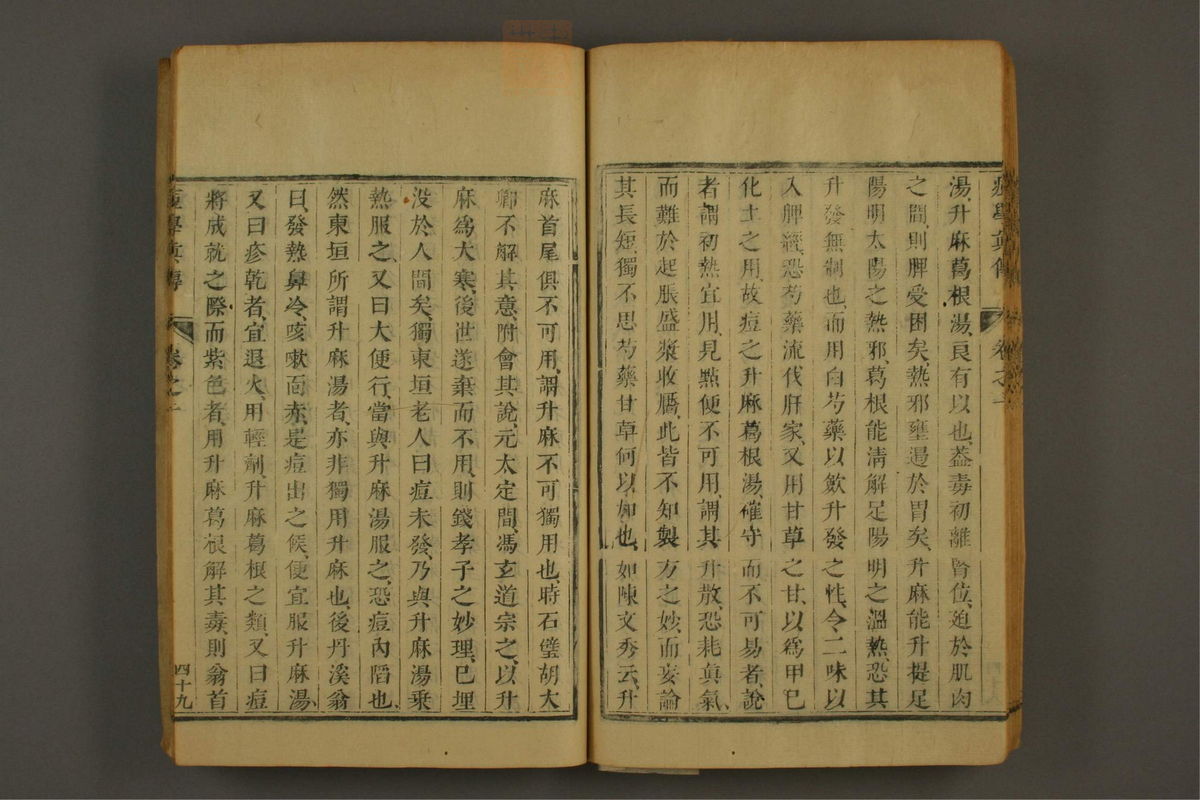 痘學真傳
卷之二
湯升麻葛根湯、良有以也、蓋毒初離腎位、廹於肌肉
之間、則脾受困矣、熱邪壅遏於胃矣、升麻能升提足
陽明太陽之熱邪、葛根能淸解足陽明之溫熱、恐其
升發無制也、而用白芍藥以歛升發之性、今二味以
入脾經、恐芍藥流伐肝家、又用甘草之甘、以爲甲巳
化土之用、故痘之升麻葛根湯、確守而不可易者、說
者謂初熱宜用、見點便不可用、謂其升散、恐耗眞氣、
而難於起脹盛漿收靨、此皆不知製方之妙、而妄論
其長短、獨不思芍藥甘草何以加也、如陳文秀云、升
麻首尾俱不可用、謂升麻不可獨用也、時石璧胡大
卿不解其意、附會其說、元太定間、馮玄道宗之、以升
麻爲大寒、後世遂棄而不用、則錢孝子之妙理、巳埋
没於人間矣、獨東垣老人曰痘未發、乃與升麻湯乗
熱服之、又曰大便行、當與升麻湯服之、恐痘內陷也、
然東垣所謂升麻湯者、亦非獨用升麻也、後丹溪翁
曰、發熱鼻冷、咳嗽面赤、是痘出之候、便宜服升麻湯、
又曰疹乾者、宜退火、用輕劑升麻葛根之類、又曰痘
將成就之際、而紫色者、用升麻葛根解其毒、則翁首
痘學真傳
卷之二
四十九